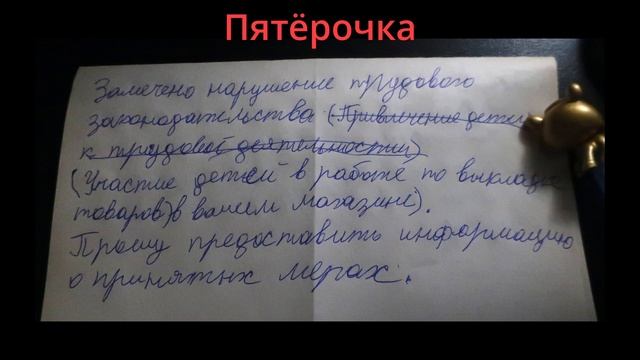 Пятёрочка
Замечено нарушение трудового
законодательства (Привлечение детей
к трудовой деятельности)
(Участие детей в работе по выкладке
товаров) в вашем магазине).
Прошу предоставить информацию
о принятых мерах.